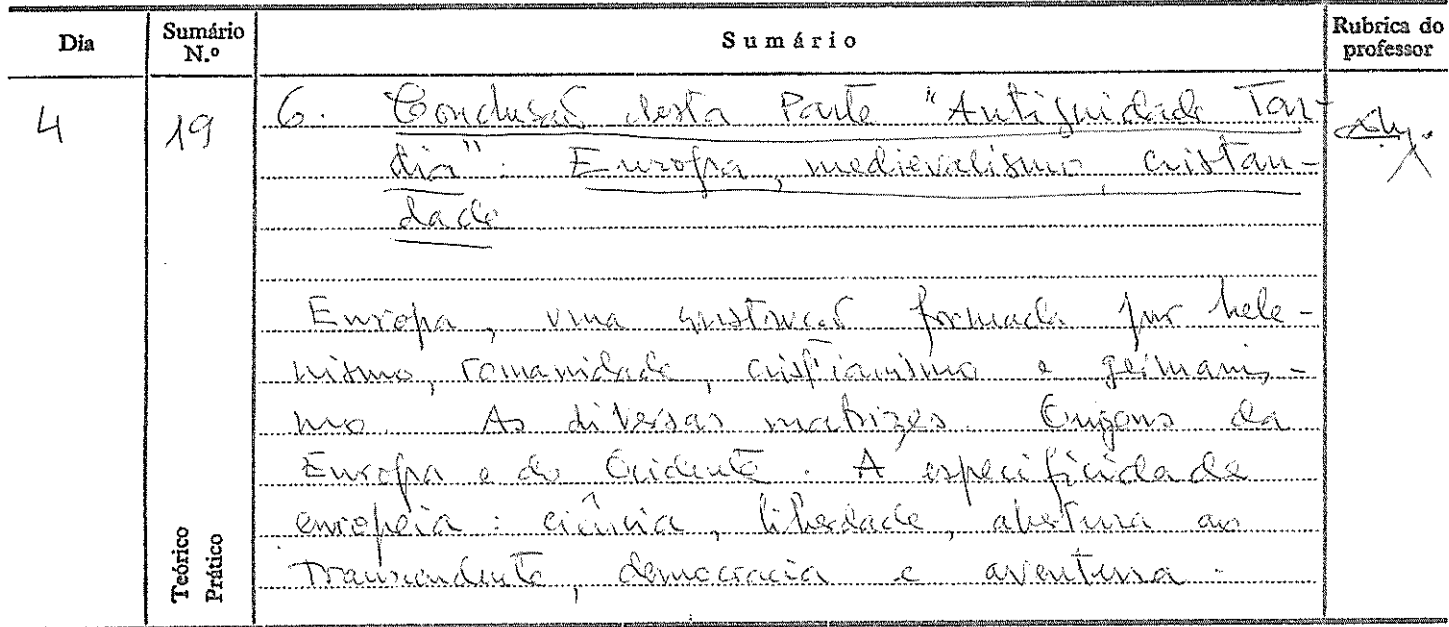 Dia
Sumário N.º
Sumário
Rubrica do professor
4
19
6. Conclusão desta Parte "Antiguidade Tar-
dia": Europa, medievalismo, cristan-
dade
Europa, uma construção formada por hele-
nismo, romanidade, cristianismo e germanis-
mo. As diversas matrizes. Origens da
Europa e do Ocidente. A especificidade
europeia: ciência, liberdade, abertura ao
Transcendente, democracia e aventura.
Teórico
Prático